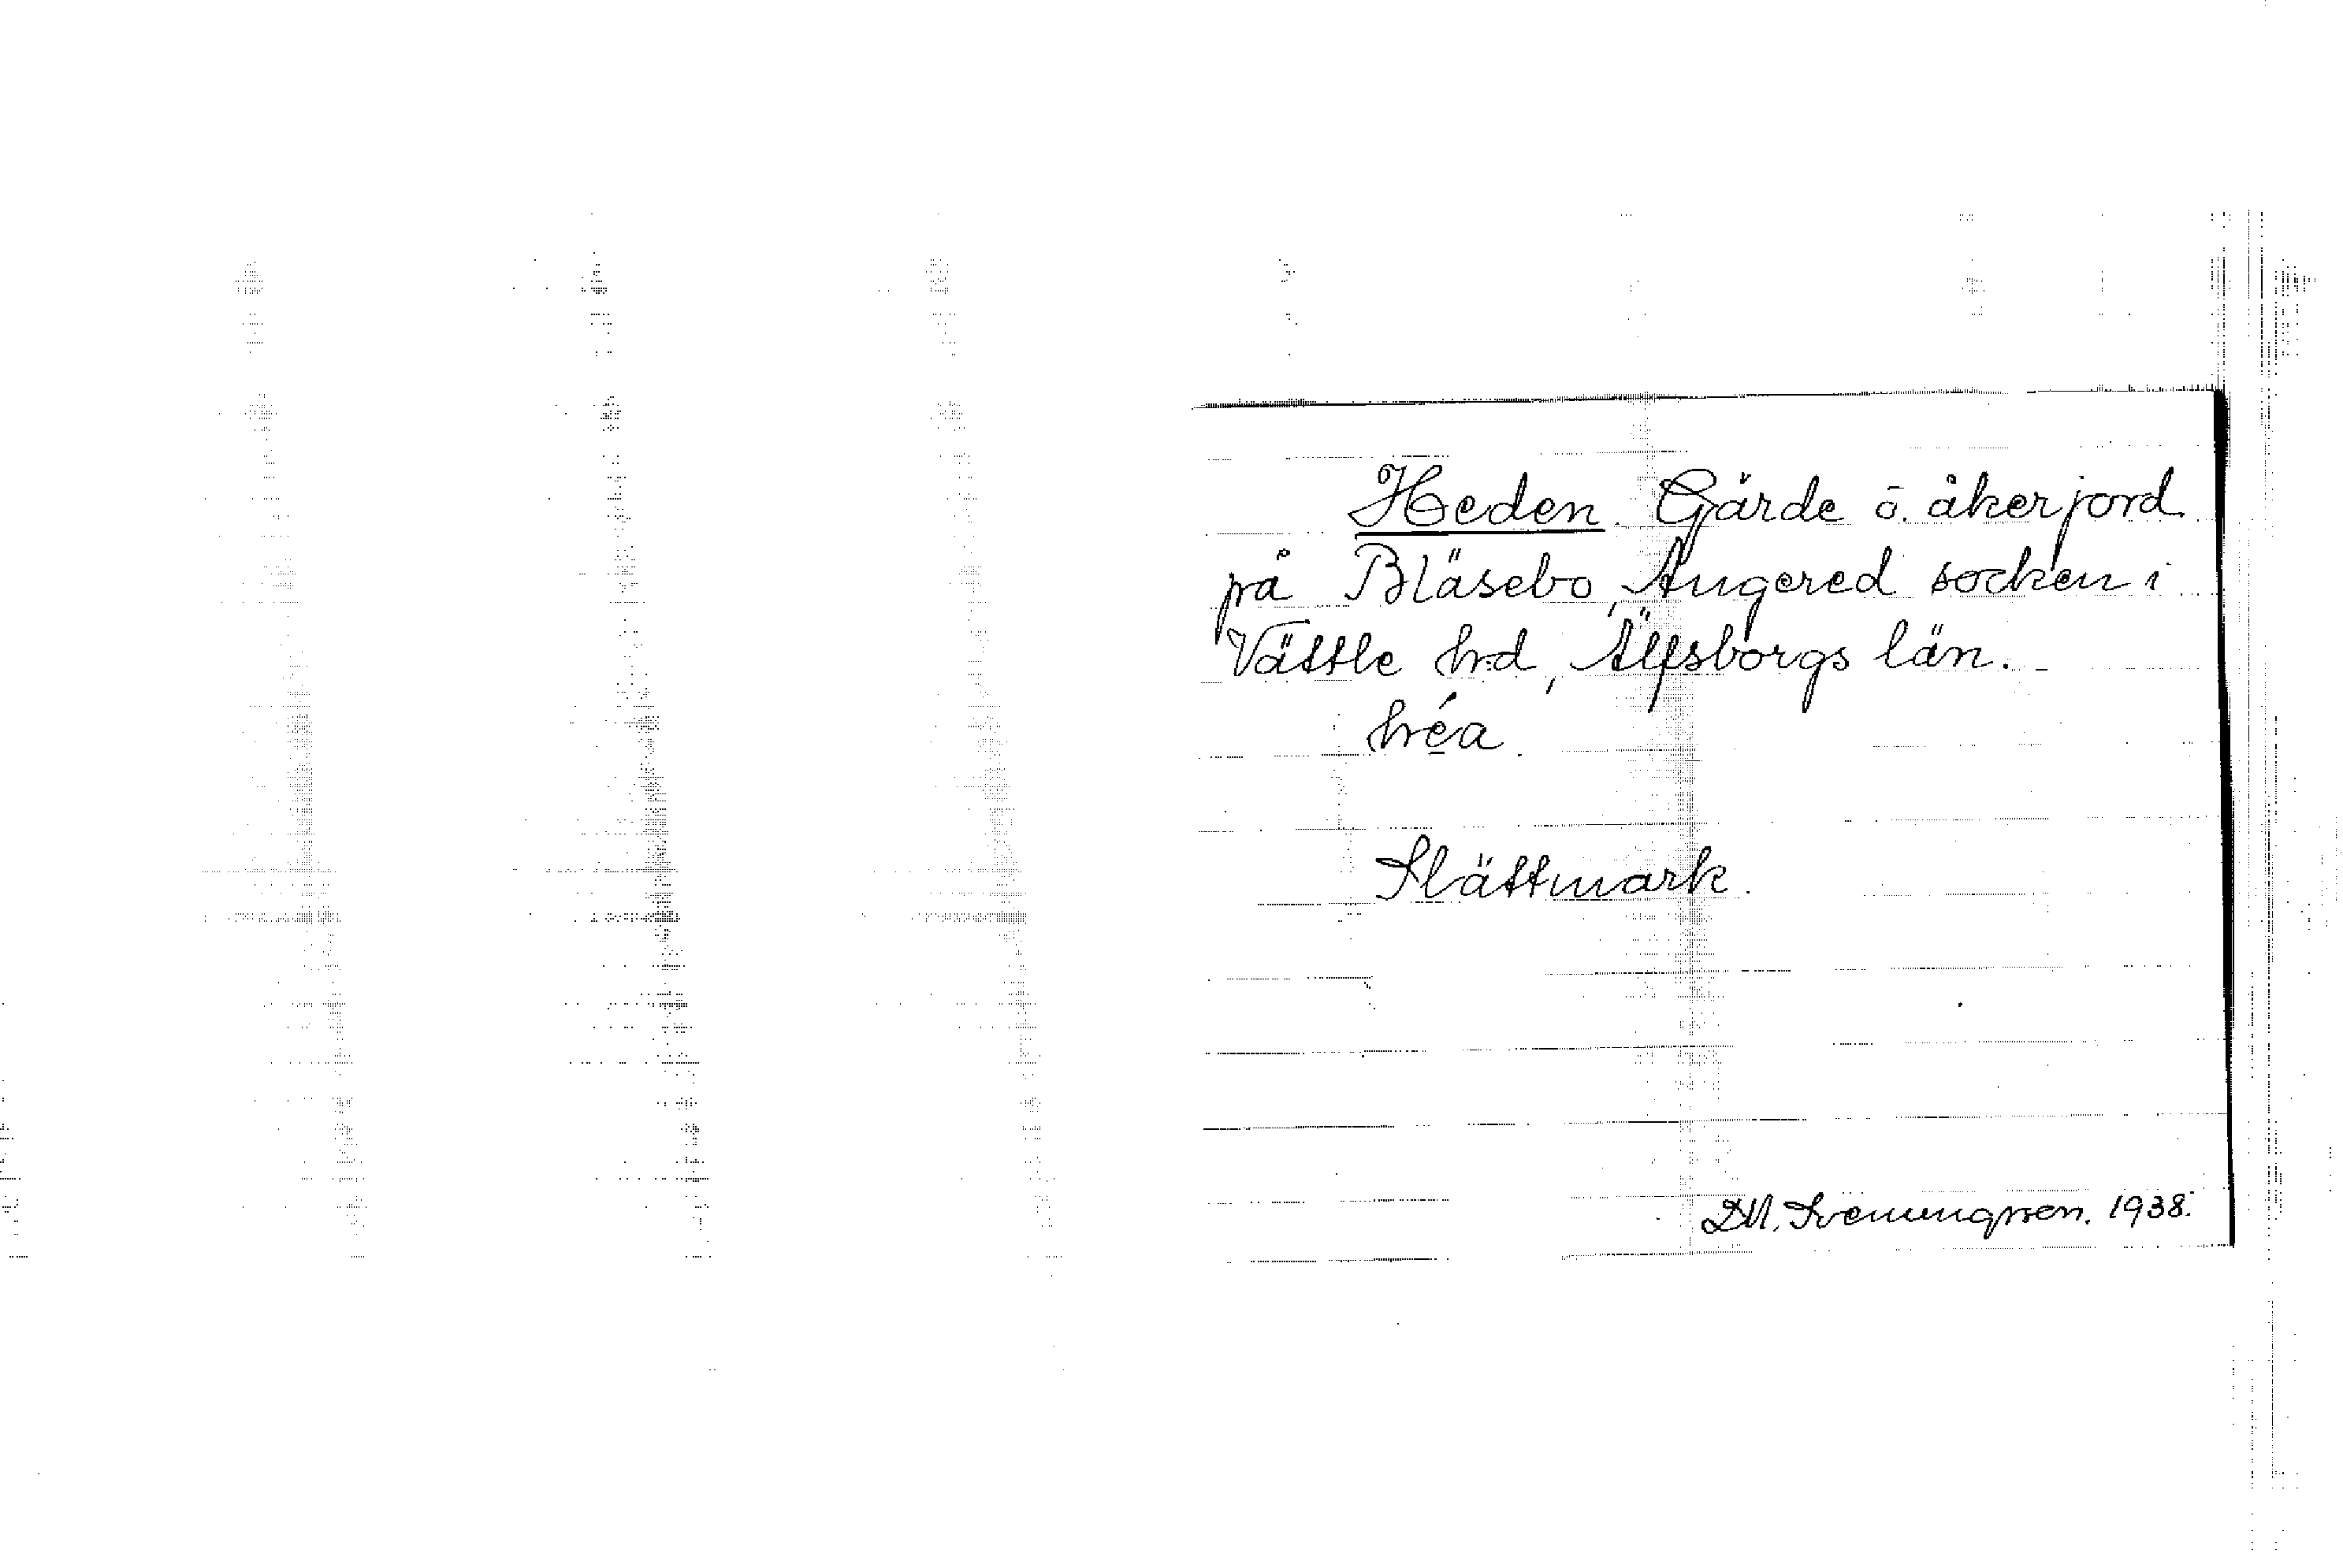 Heden. Gärde o. åkerjord
på Bläsebo, Angered socken i
Vättle hrd, Älfsborgs län.
hé̠a.
Slättmark.
D.M. Svenungsson. 1938.